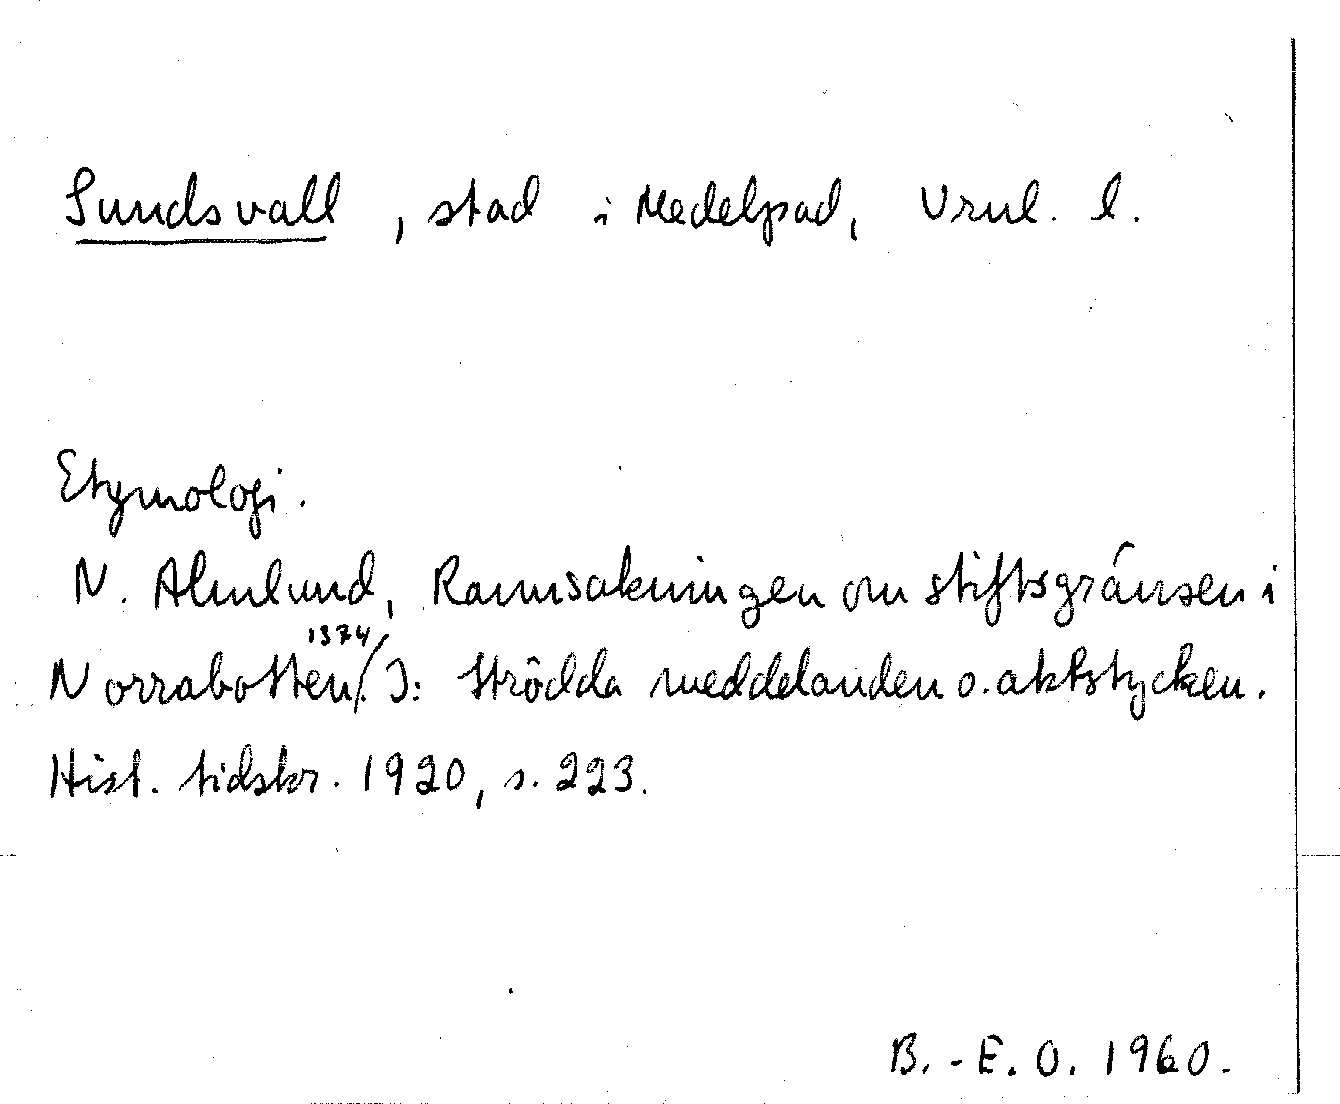 Sundsvall, stad i Medelpad, Vrnl. l.
Etymologi.
N. Ahnlund, Rannsakningen om stiftsgränsen i
Norrabotten 1374. I: Strödda meddelanden o. aktstycken.
Hist. tidskr. 1920, s. 223.
B.-E. O. 1960.